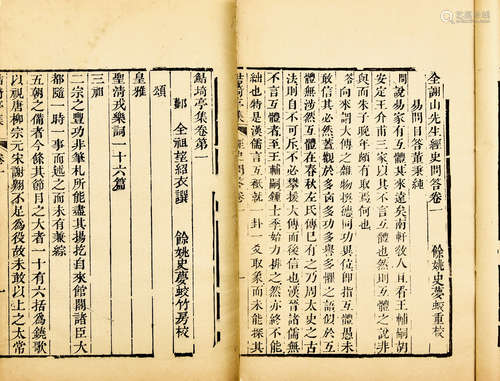 全謝山先生經史問答卷一
餘姚史夢蛟重校
易問目答董秉純
問說易家有互體其來遠矣南軒敎人且看王輔嗣胡
安定王介甫三家以其不言互體也然則互體之說非
與而朱子晚年頗有取焉何也
答向來謂大傳之雜物撰德同功異位卽指互體愚未
敢信其必然蓋觀於多凶多功多譽多懼之語似於互
體無涉然互體在春秋左氏傳已有之乃周太史之古
法則自不可斥不必攀援大傳而信也漢晉諸儒無
不言互體者至王輔嗣鍾士季始力排之然亦終不能
絀也特是漢儒言互體祇就一卦一爻取象而未能探其
經史問答 卷一
鮚埼亭集卷第一
鄞 全祖望紹衣譔 餘姚史夢蛟竹房校
頌
皇雅
聖清戎樂詞一十六篇
三祖
二宗之豐功非筆札所能盡其揚扢自來館閣諸臣大
都隨一時一事而述之而未有兼綜
五朝之備者今條其節目之大者一十有六括爲鐃歌
以視唐柳宗元宋謝翱不足爲役故未敢以上之太常
鮚埼亭集 卷一